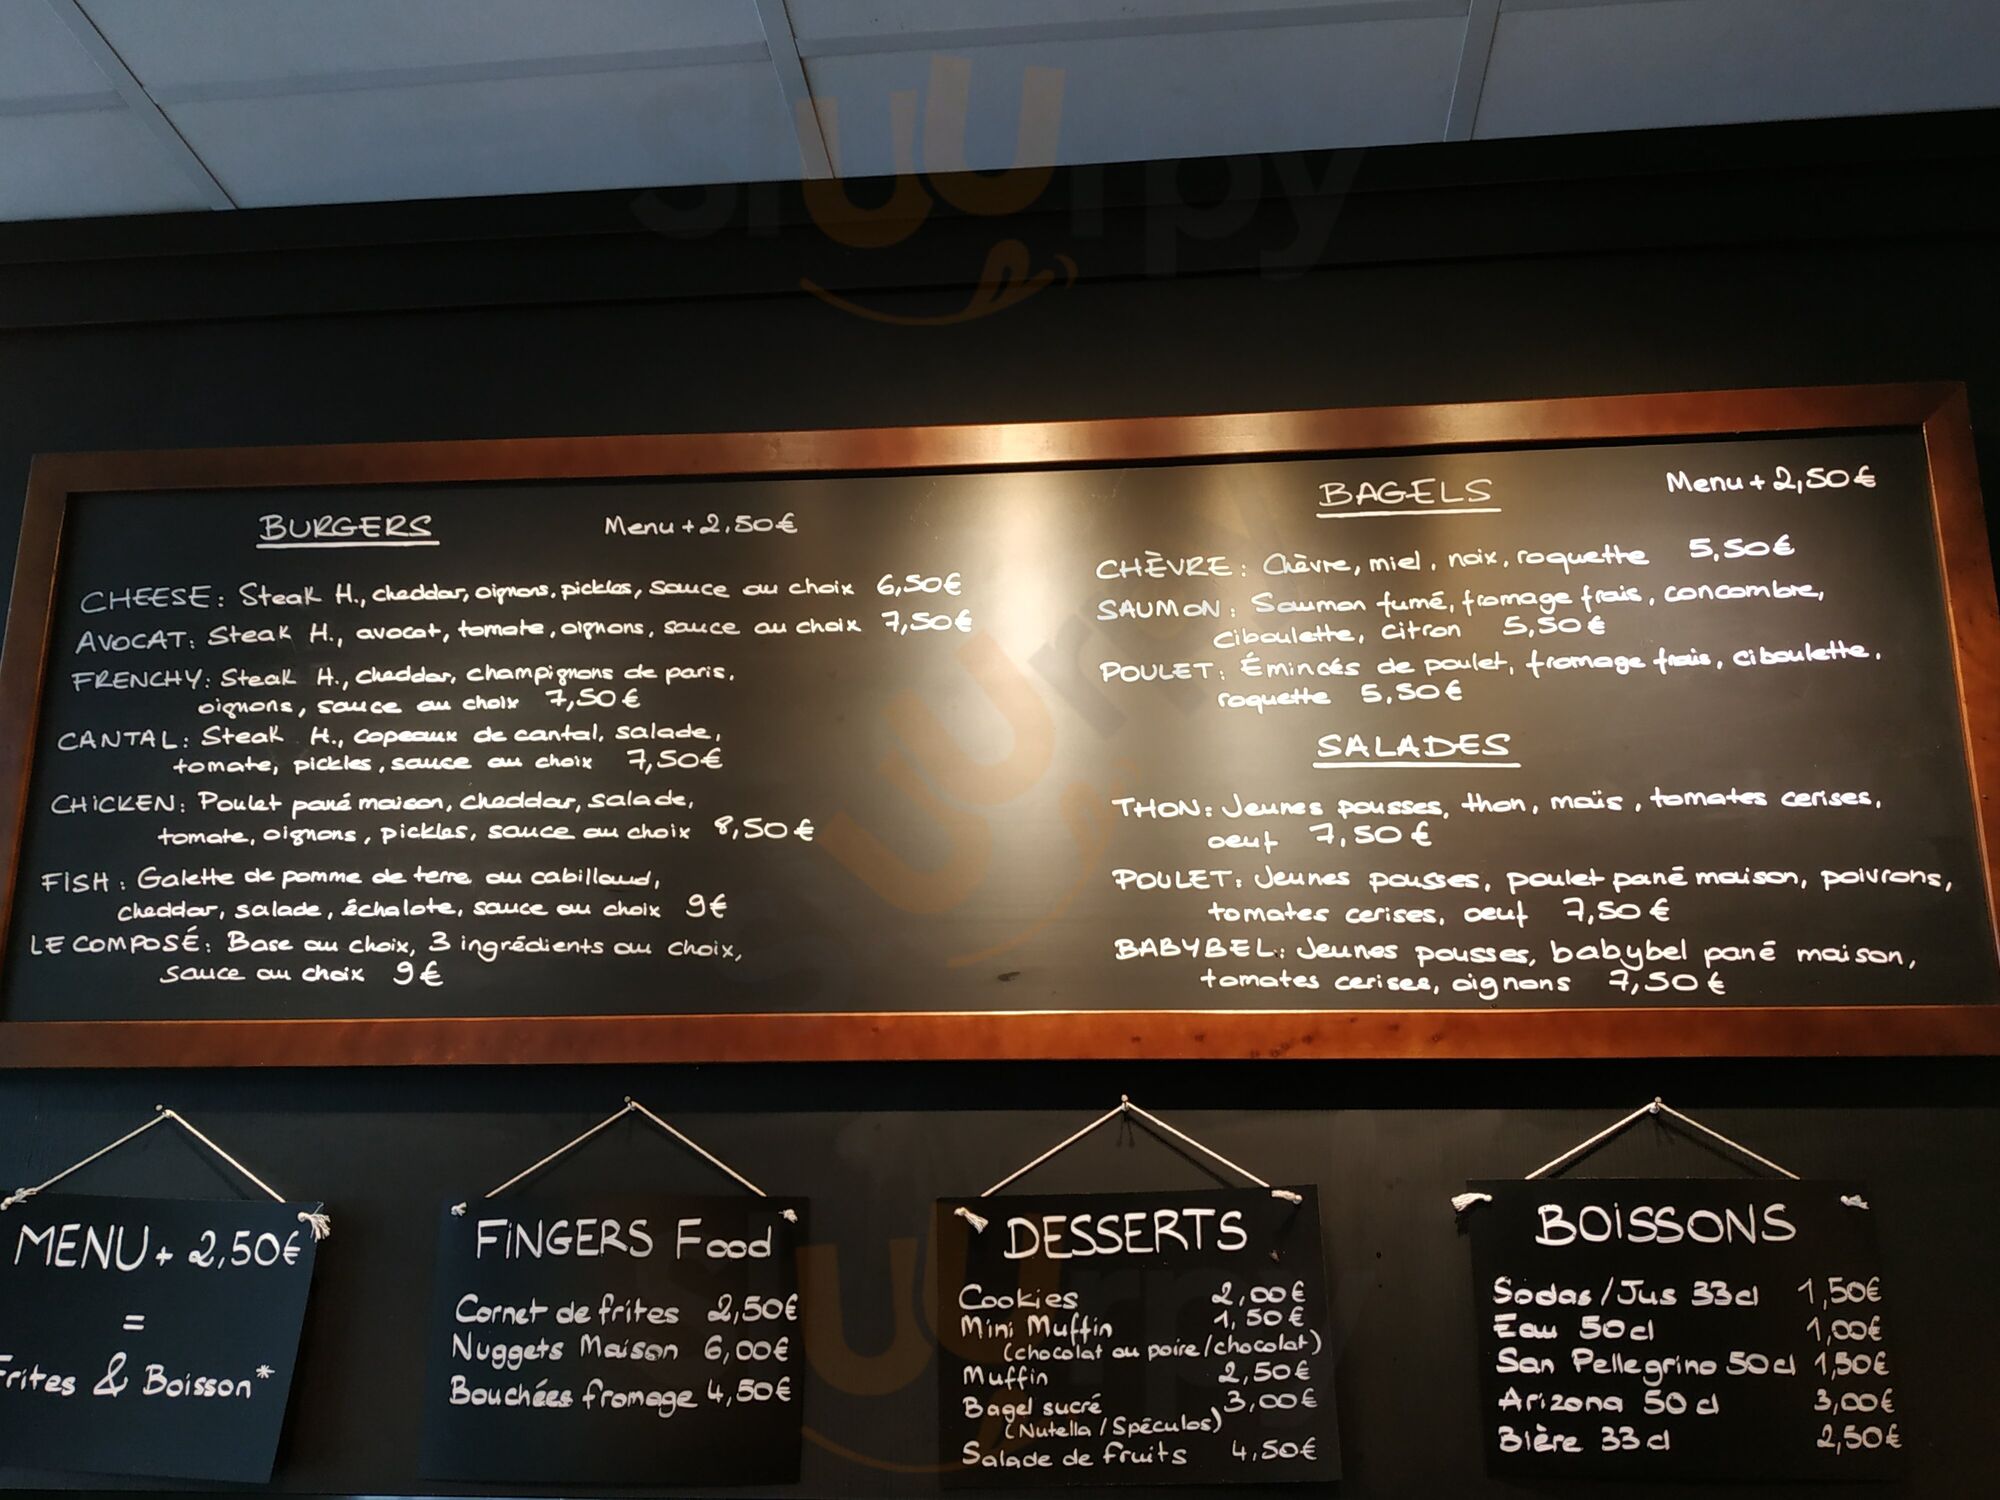 BURGERS Menu + 2,50€
CHEESE: Steak H., cheddar, oignons, pickles, sauce au choix 6,50€
AVOCAT: Steak H., avocat, tomate, oignons, sauce au choix 7,50€
FRENCHY: Steak H., cheddar, champignons de paris,
oignons, sauce au choix 7,50€
CANTAL: Steak H., copeaux de cantal, salade,
tomate, pickles, sauce au choix 7,50€
CHICKEN: Poulet pané maison, cheddar, salade,
tomate, oignons, pickles, sauce au choix 8,50€
FISH: Galette de pomme de terre ou cabillaud,
cheddar, salade, échalote, sauce au choix 9€
LE COMPOSÉ: Base au choix, 3 ingrédients au choix,
sauce au choix 9€
BAGELS Menu + 2,50€
CHÈVRE: Chèvre, miel, noix, roquette 5,50€
SAUMON: Saumon fumé, fromage frais, concombre,
ciboulette, citron 5,50€
POULET: Émincés de poulet, fromage frais, ciboulette,
roquette 5,50€
SALADES
THON: Jeunes pousses, thon, maïs, tomates cerises,
oeuf 7,50€
POULET: Jeunes pousses, poulet pané maison, poivrons,
tomates cerises, oeuf 7,50€
BABYBEL: Jeunes pousses, babybel pané maison,
tomates cerises, oignons 7,50€
MENU + 2,50€
=
Frites & Boisson*
FiNGERS Food
Cornet de frites 2,50€
Nuggets Maison 6,00€
Bouchées fromage 4,50€
DESSERTS
Cookies 2,00€
Mini Muffin 1,50€
(chocolat ou poire/chocolat)
Muffin 2,50€
Bagel sucré 3,00€
(Nutella/Spéculos)
Salade de fruits 4,50€
BOiSSONS
Sodas/Jus 33cl 1,50€
Eau 50cl 1,00€
San Pellegrino 50cl 1,50€
Arizona 50cl 3,00€
Bière 33cl 2,50€
sluurpy
sluurpy
sluurpy